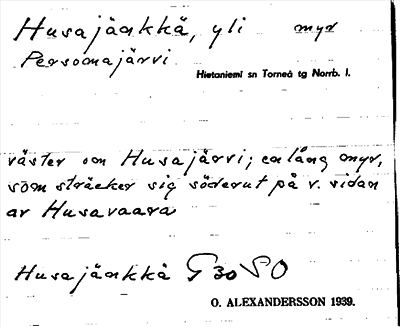 Husajänkkä, yli myr
Persomajärvi
Hietaniemi sn Torneå tg Norrb. l.
väster om Husajärvi; en lång myr,
som sträcker sig söderut på v. sidan
av Husavaara
Husajänkkä G 30 SO
O. ALEXANDERSSON 1939.